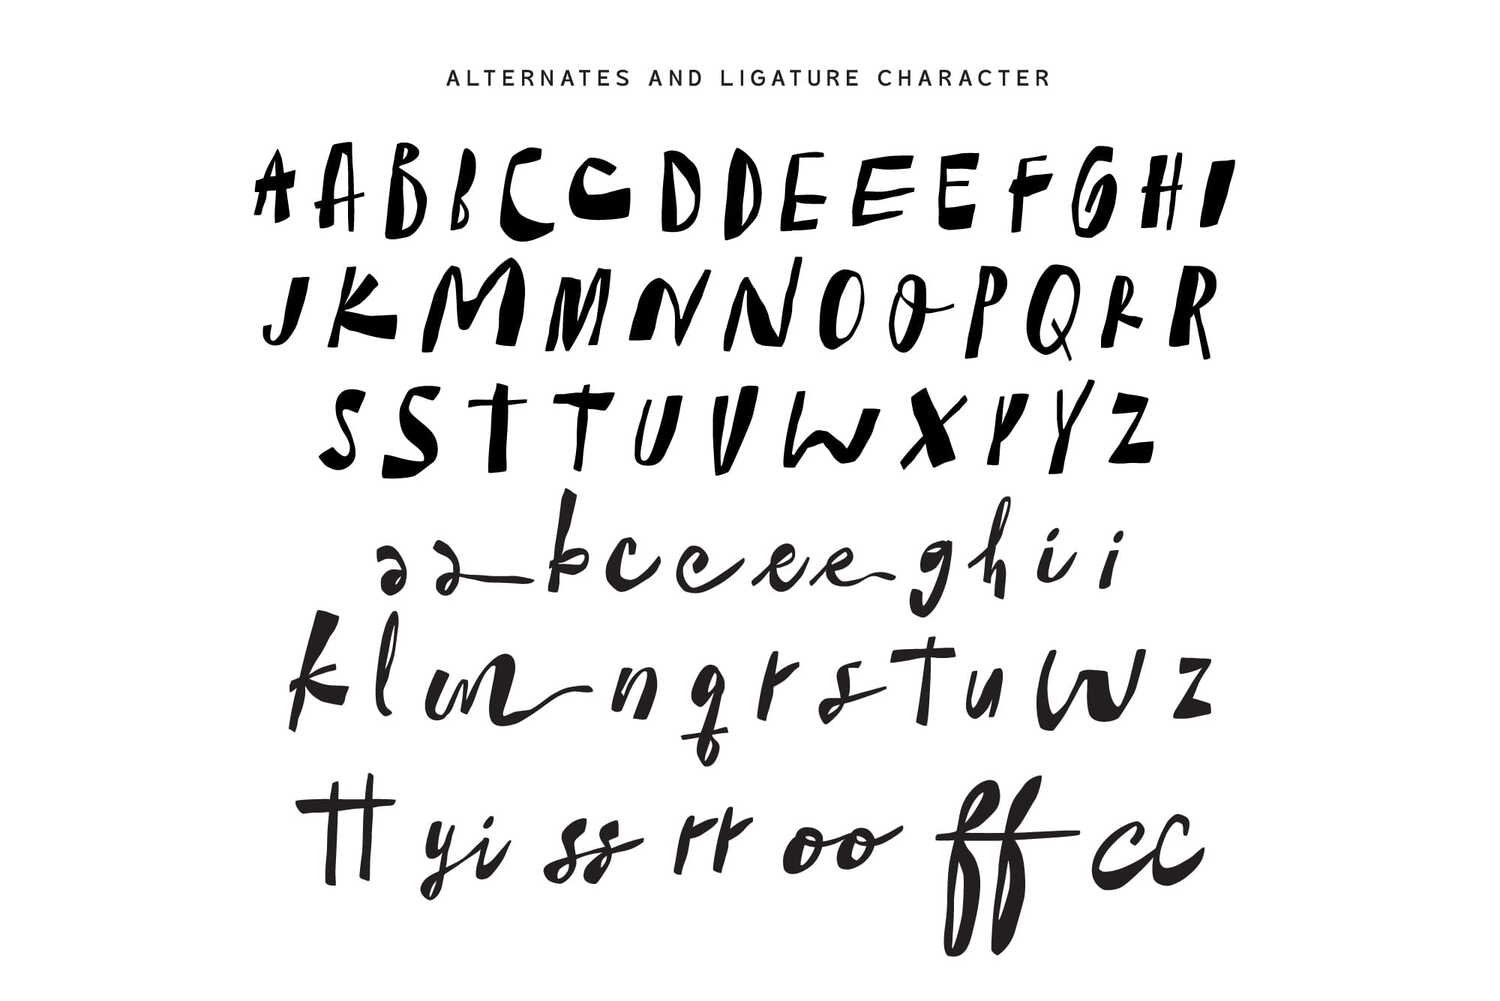 ALTERNATES AND LIGATURE CHARACTER
A A B B C C D D E E E F G H I
J K M M N N O O P Q R R
S S T T U V W X Y Y Z
a a b c c e e g h i i
k l m n q r s t u w z
tt yi ss rr oo ff cc